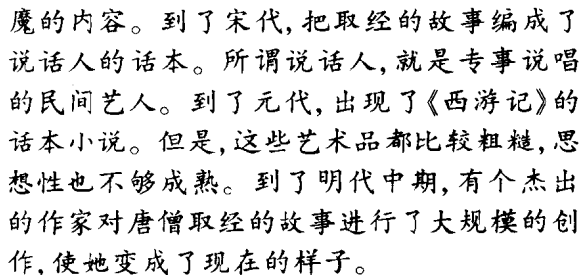 魔的内容。到了宋代,把取经的故事编成了
说话人的话本。所谓说话人,就是专事说唱
的民间艺人。到了元代,出现了《西游记》的
话本小说。但是,这些艺术品都比较粗糙,思
想性也不够成熟。到了明代中期,有个杰出
的作家对唐僧取经的故事进行了大规模的创
作,使她变成了现在的样子。